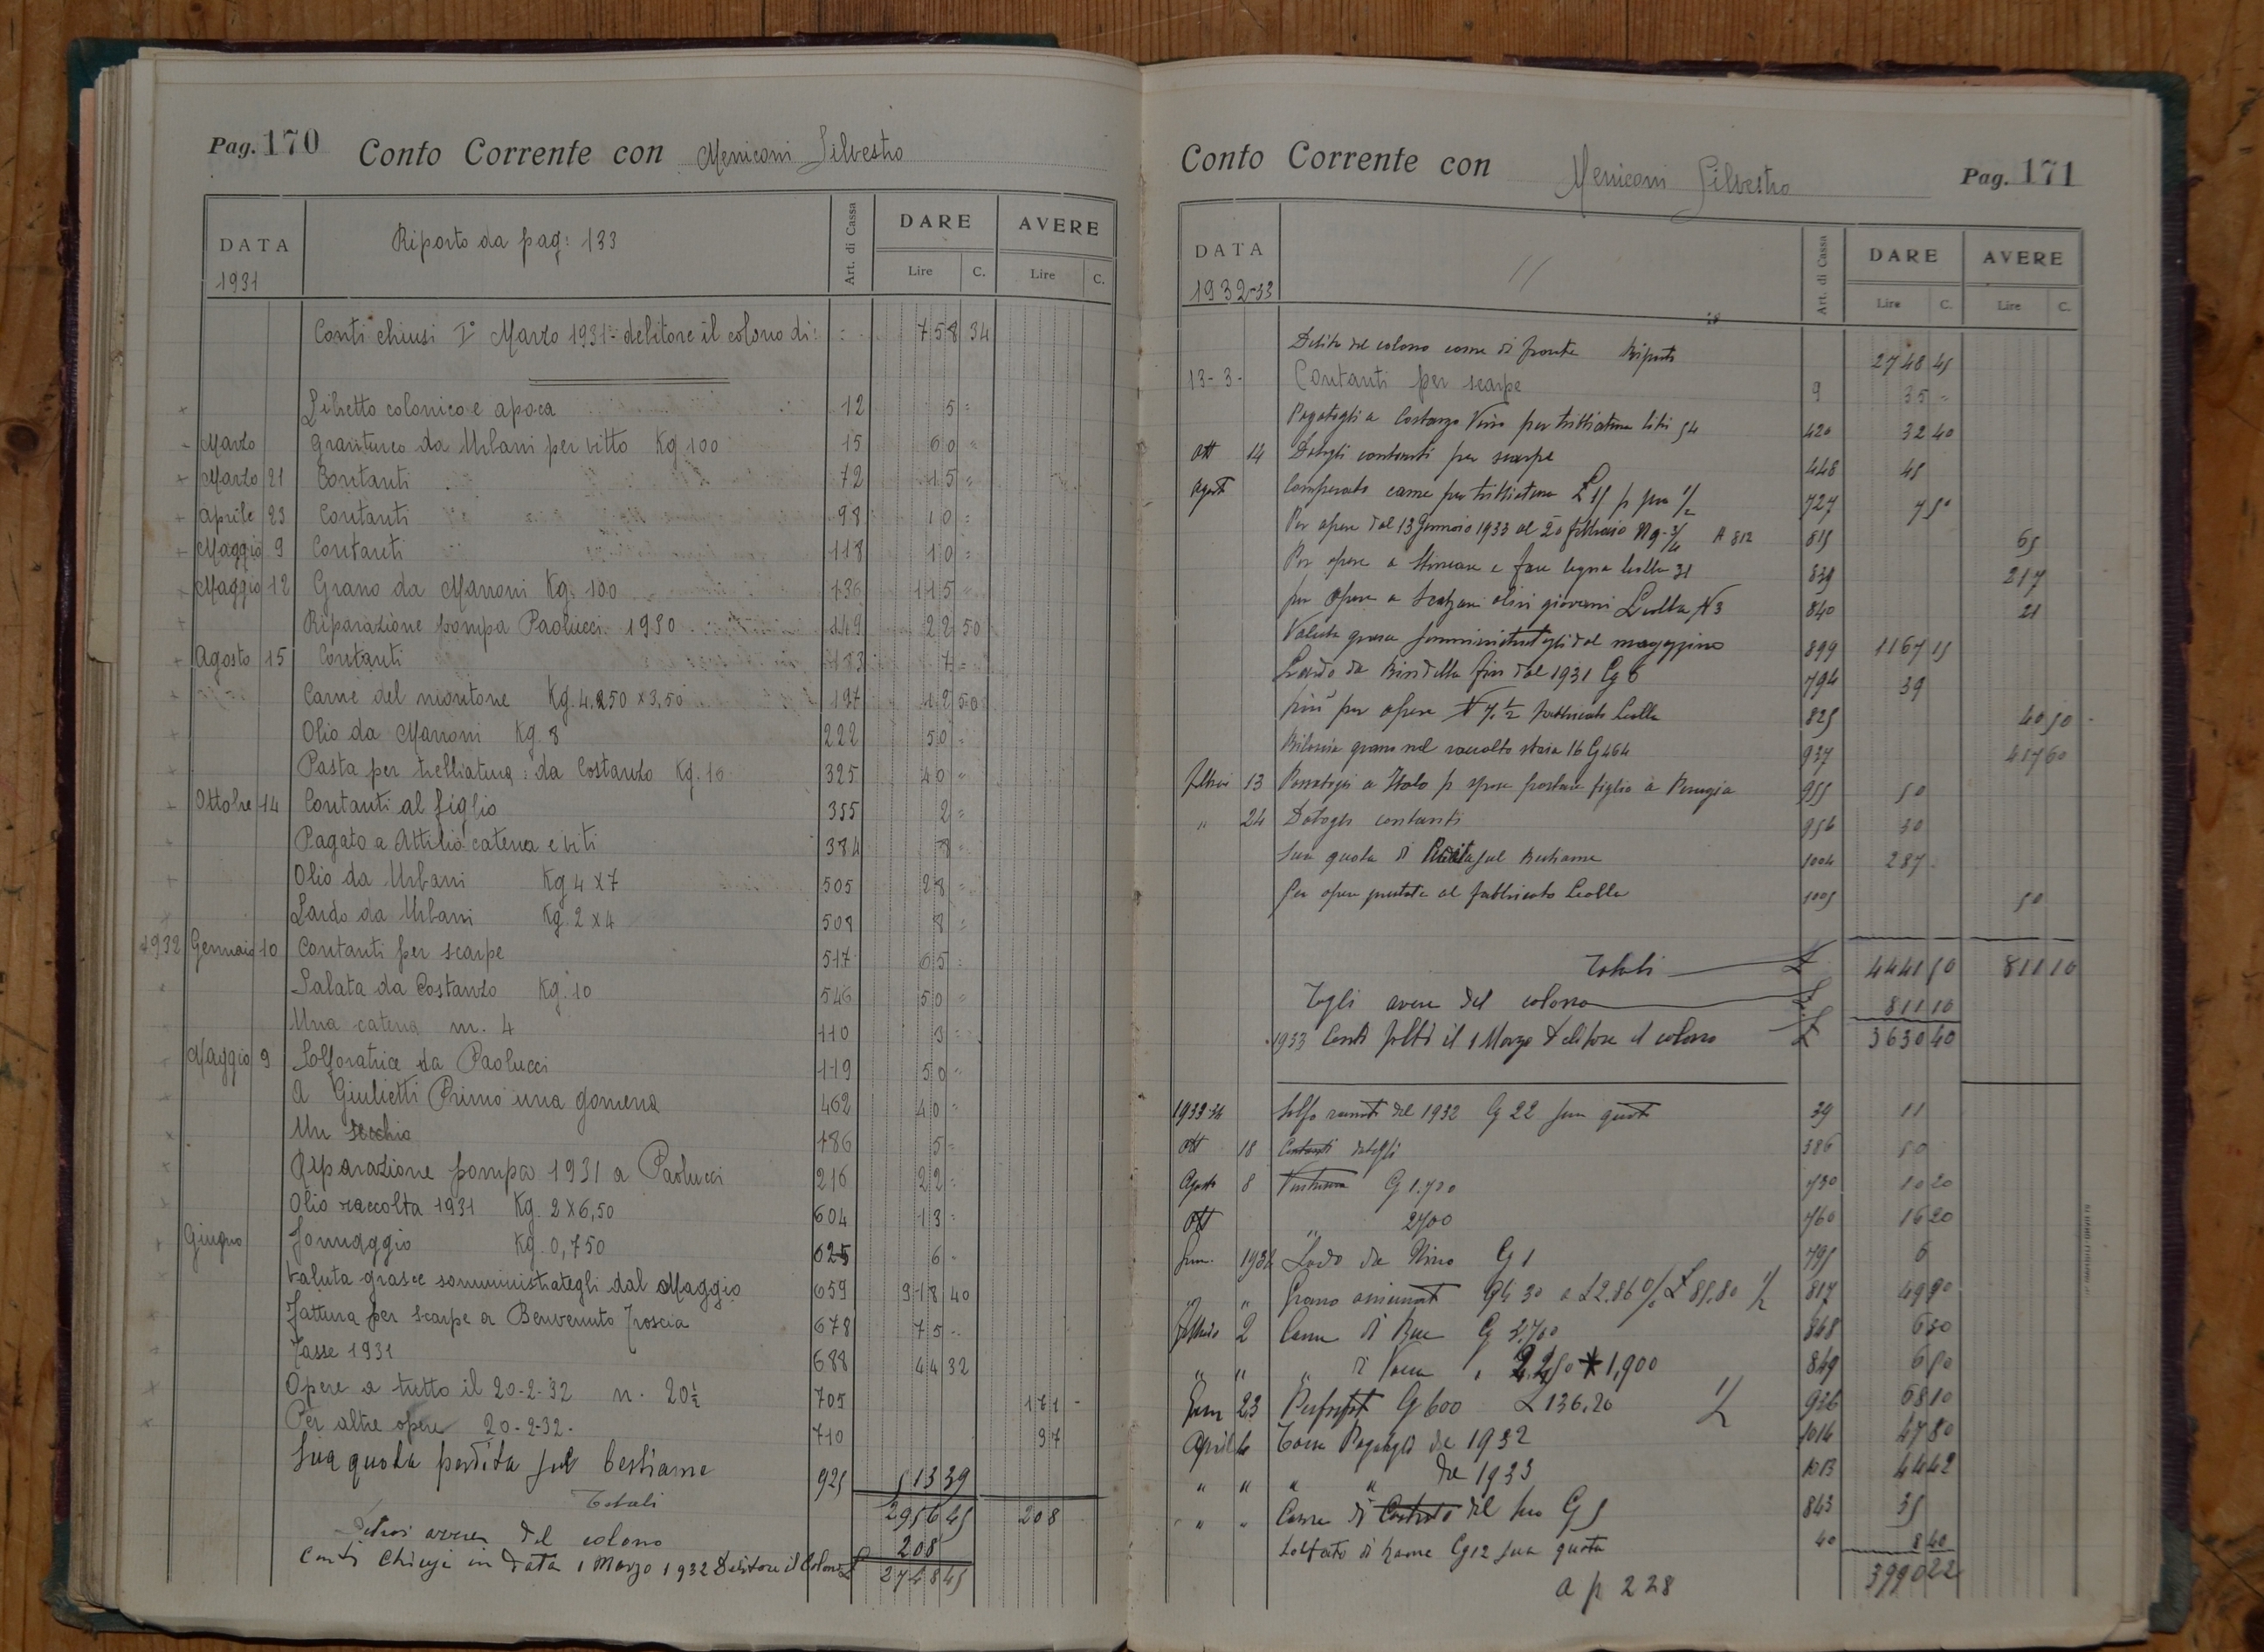 Pag. 170 Conto Corrente con Meniconi Silvestro
DATA Riporto da pag: 133 Art. di Cassa DARE AVERE
1931 Lire C. Lire C.
Conti chiusi I° Marzo 1931 - debitore il colono di: 758 34
Libretto colonico e apoca 12 5 =
Marzo Granturco da Urbani per vitto Kg 100 15 60 =
Marzo 21 Contanti 72 15 =
Aprile 23 Contanti 98 10 =
Maggio 9 Contanti 118 10 =
Maggio 12 Grano da Marroni Kg. 100 136 115 =
Riparazione pompa Paolucci 1930 149 22 50
Agosto 15 Contanti 183 7 =
Carne del montone Kg. 4.250 x 3,50 197 12 50
Olio da Marroni Kg. 8 222 50 =
Pasta per trebbiatura: da Costanzo Kg. 10 325 40 =
Ottobre 14 Contanti al figlio 355 2 =
Pagato a Attilio catena e viti 384 8 =
Olio da Urbani Kg 4 x 7 505 28 =
Lardo da Urbani Kg. 2 x 4 508 8 =
1932 Gennaio 10 Contanti per scarpe 517 65 =
Salata da Costanzo Kg. 10 546 50 =
Una catena m. 4 110 3 =
Maggio 9 Solforatrice da Paolucci 119 50 =
A Giulietti Primo una gomena 462 40 =
Un secchio 186 5 =
Riparazione pompa 1931 a Paolucci 216 22 =
Olio raccolta 1931 Kg. 2 x 6,50 604 13 =
Giugno Formaggio Kg. 0,750 625 6 =
Valuta grasce somministrategli dal Maggio 659 918 40
Fattura per scarpe a Benvenuto Troscia 678 75 =
Tasse 1931 688 44 32
Opere a tutto il 20-2-32 n. 20½ 705 171 -
Per altre opere 20-2-32. 710 37
Sua quota perdita sul bestiame 925 513 39
Totali 2956 45 208
avere del colono 208
Conti Chiusi in data 1 Marzo 1932 Debitore il Colono £ 2748 45
Conto Corrente con Meniconi Silvestro Pag. 171
DATA // Art. di Cassa DARE AVERE
1932-33 Lire C. Lire C.
Debito del colono come di fronte Riporto 2748 45
13-3- Contanti per scarpe 9 35 =
Pagategli a Costanzo Vino per trebbiatura litri 54 420 32 40
Ott 14 Datogli contanti per scarpe 448 45
Agost Comperato carne per trebbiatura £ 15 p sua ½ 727 7 50
Per opere dal 13 Gennaio 1933 al 20 febbraio N 9-¾ A 812 815 65
Per opere a Stincare e fare legna bolle 31 839 217
per opere a Scalzare olivi giovani bolla N 3 840 21
Valuta grasce somministrategli dal magazzino 899 1167 15
Lardo da Rindella fin dal 1931 Cg 6 794 39
più per opere N 7.½ fabbricato bolle 825 40 50
Bilancia grano nel raccolto staia 16 G 464 937 417 60
Febbraio 13 a Italo p spese portare figlio a Perugia 955 50
" 24 Datogli contanti 956 30
Sua quota di Perdita sul Bestiame 1004 287 -
Per opere prestate al fabbricato bolle 1005 50
Totali £ 4441 50 811 10
Togli avere del colono £ 811 10
1933 Conti fatti il 1 Marzo debitore il colono £ 3630 40
1933-34 Solfo ramato del 1932 Cg 22 sua quota 39 11
Ott 18 Contanti datogli 386 50
Agosto 8 Ventresca G 1.700 730 10 20
Ott " 2700 760 16 20
Genn. 1934 Lardo da Nino Cg 1 795 6
" " Grano £ 85.80 ½ 817 49 90
Febbraio 2 Carne di Bue G 2.700 848 6 30
" " " di Vacca " 2.250 * 1,900 849 6 50
Genn 23 Perfosfat G 600 £ 136.20 ½ 926 68 10
Aprile Tasse Pagategli del 1932 1014 47 80
" " " " del 1933 1013 44 42
" " Carne di Castrato del suo G 5 843 35
Solfato di Rame Cg 12 sua quota 40 8 40
3990 22
a p 228